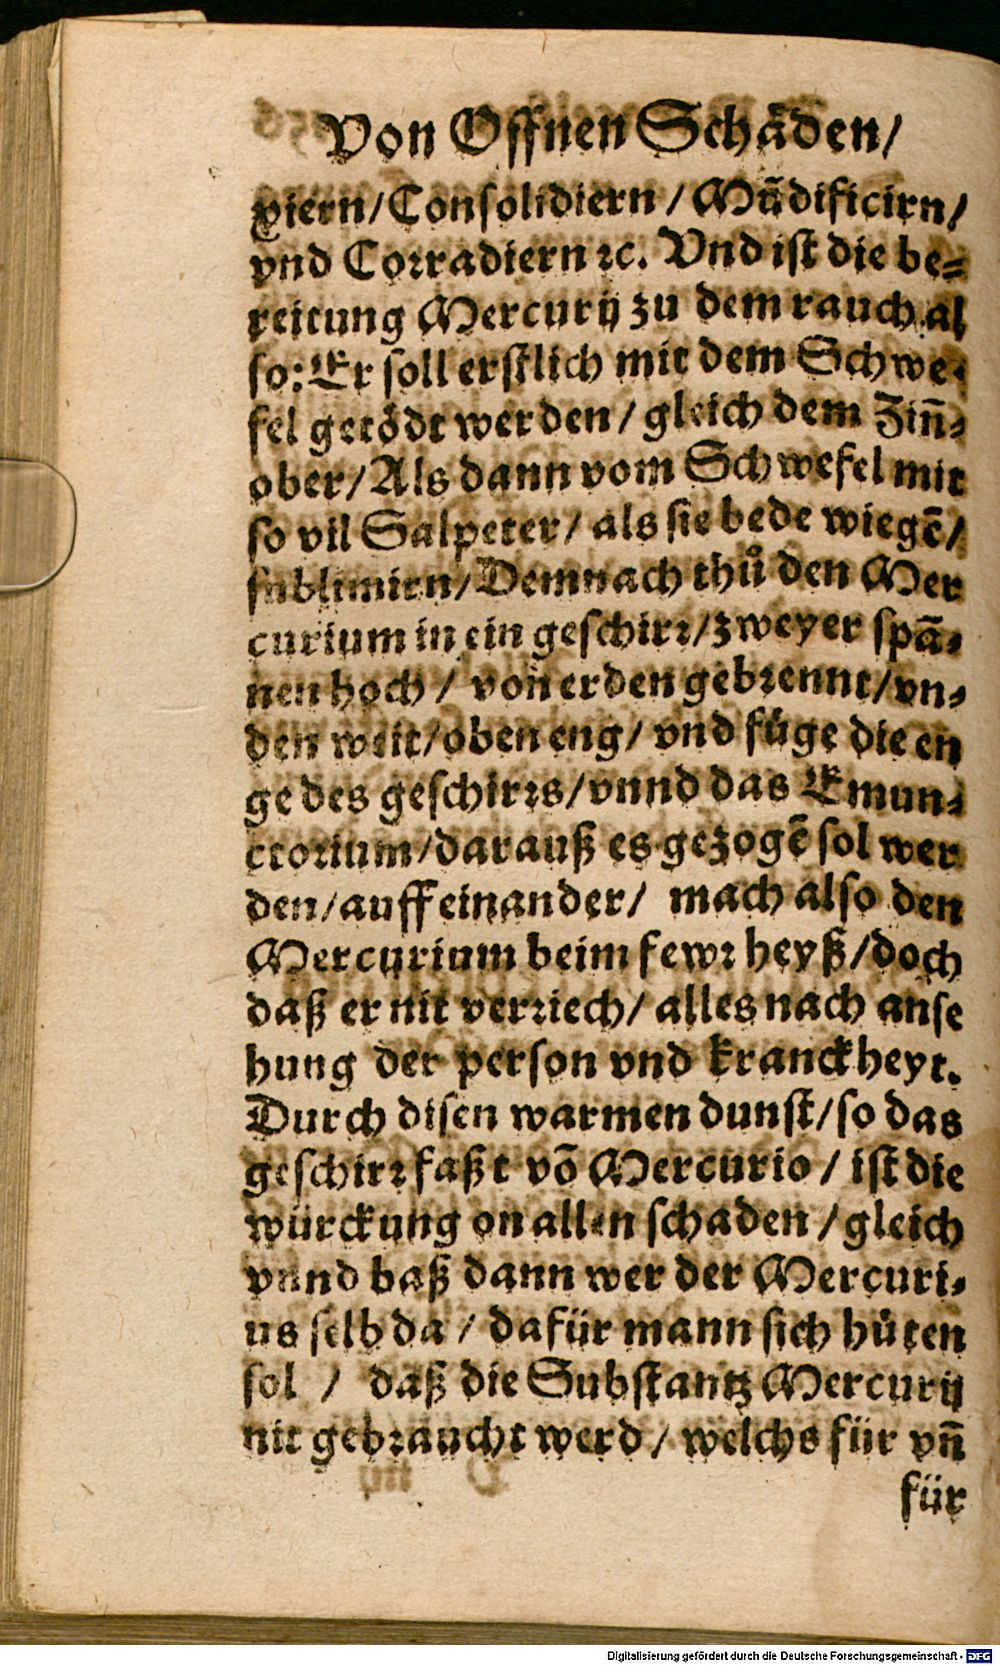 Von Offnen Schäden/
xiern/Consolidiern/Mūdificirn/
vnd Corradiern ꝛc. Vnd ist die be=
reitung Mercurij zu dem rauch al
so: Er soll erstlich mit dem Schwe-
fel getödt werden/ gleich dem Zin̄-
ober/ Als dann vom Schwefel mit
so vil Salpeter/ als sie bede wiegē/
sublimirn/ Demnach thů den Mer
curium in ein geschirr/ zweyer spā-
nen hoch/ von erden gebrennt/ vn-
den weit/ oben eng/ vnd füge die en
ge des geschirrs/ vnnd das Emun-
ctorium/ darauß es gezogē sol wer
den/ auff einander/ mach also den
Mercurium beim fewr heyß/ doch
daß er nit verriech/ alles nach anse
hung der person vnd kranckheyt.
Durch disen warmen dunst/ so das
geschirr faßt võ Mercurio/ ist die
würckung on allen schaden/ gleich
vnnd baß dann wer der Mercuri-
us selb da/ dafür mann sich hüten
sol/ daß die Substantz Mercurij
nit gebraucht werd/ welchs für vn̄
für
Digitalisierung gefördert durch die Deutsche Forschungsgemeinschaft - DFG